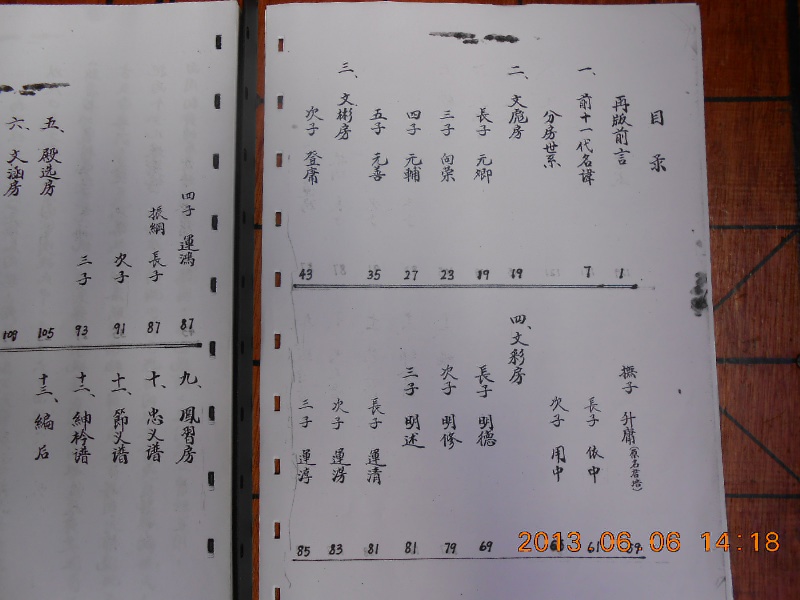 目录
再版前言 1
一、前十一代名諱 7
分房世系
二、文彪房 19
長子 元卿 19
三子 向荣 23
四子 元輔 27
五子 元善 35
三、文彬房
次子 登庸 43
撫子 升庸
長子 依中 61
次子 用中
四、文彩房
長子 明德 69
次子 明修 79
三子 明述 81
長子 運清 81
次子 運湧 83
三子 運淳 85
四子 運鴻 87
振綱 長子 87
次子 91
三子 93
五、殿选房 105
六、文涵房 109
九、鳳習房
十、忠义谱
十一、節义谱
十二、紳衿谱
十三、编后
2013.06.06 14:18